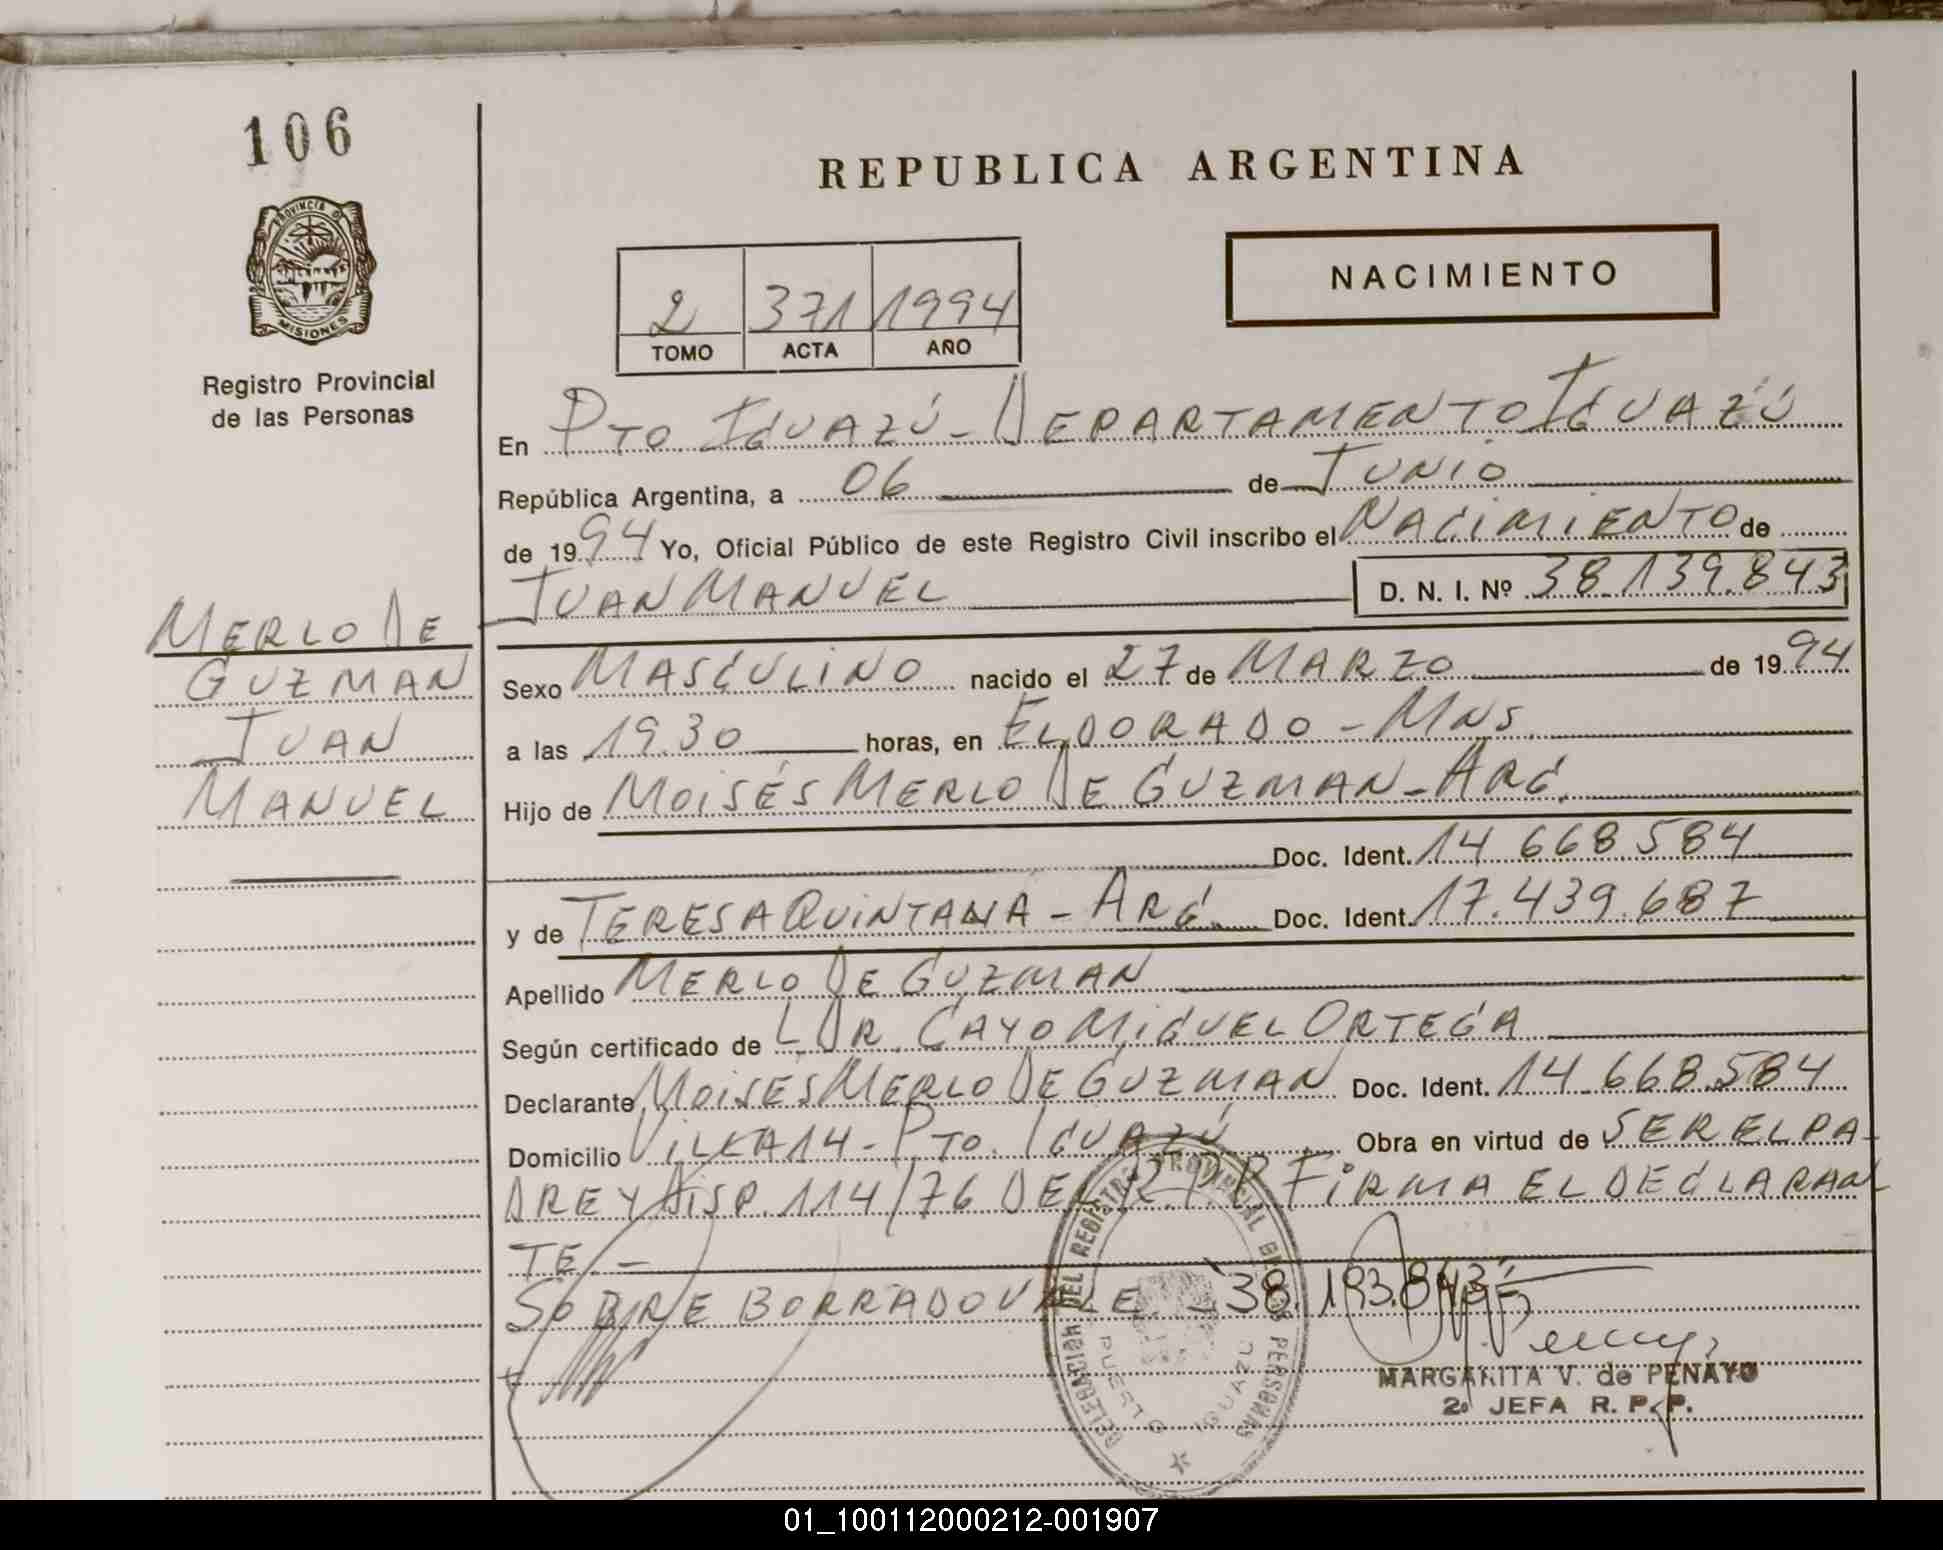 106
REPUBLICA ARGENTINA
PROVINCIA DE
MISIONES
Registro Provincial
de las Personas
2 371 1994
TOMO ACTA AÑO
NACIMIENTO
En PTO. IGUAZÚ - DEPARTAMENTO IGUAZÚ
República Argentina, a 06 de JUNIO
de 1994 Yo, Oficial Público de este Registro Civil inscribo el NACIMIENTO de
JUAN MANUEL D. N. I. Nº 38.139.843
MERLO DE
GUZMAN
JUAN
MANUEL
Sexo MASCULINO nacido el 27 de MARZO de 1994
a las 19.30 horas, en ELDORADO - MNS.
Hijo de MOISÉS MERLO DE GUZMAN - ARG.
Doc. Ident. 14.668.584
y de TERESA QUINTANA - ARG. Doc. Ident. 17.439.687
Apellido MERLO DE GUZMAN
Según certificado de L DR. CAYO MIGUEL ORTEGA
Declarante MOISES MERLO DE GUZMAN Doc. Ident. 14.668.584
Domicilio VILLA 14 - PTO. IGUAZÚ Obra en virtud de SER EL PA-
DRE Y DISP. 114/76 DEL R.P.P FIRMA EL DECLARAN
TE. -
SOBRE BORRADO VALE - 38.193.843
DELEGACION DEL REGISTRO PROVINCIAL DE LAS PERSONAS
PUERTO IGUAZU
MARGARITA V. de PENAYO
2º JEFA R. P. P.
01_100112000212-001907